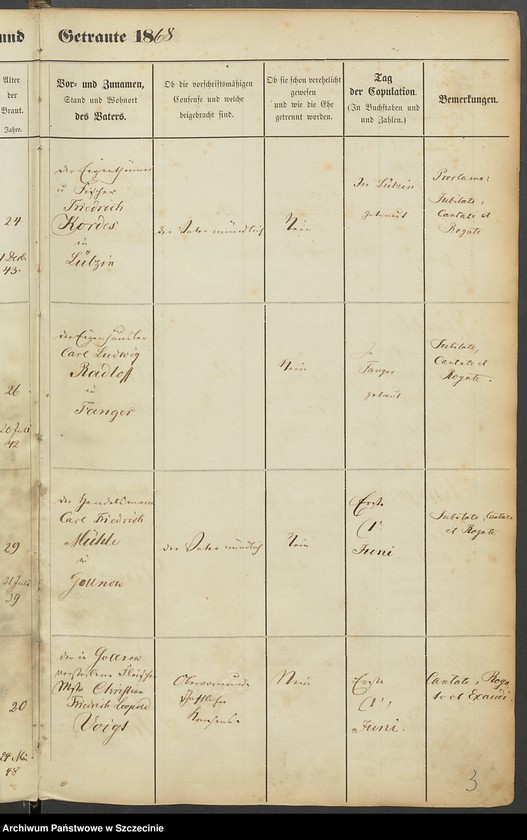 und Getraute 1868
Alter
der
Braut.
Jahre.
Vor- und Zunamen,
Stand und Wohnort
des Vaters.
Ob die vorschriftsmäßigen
Consense und welche
beigebracht sind.
Ob sie schon verehelicht
gewesen
und wie die Ehe
getrennt worden.
Tag
der Copulation.
(In Buchstaben und
und Zahlen.)
Bemerkungen.
24
43.
der Eigenthümer
u Fischer
Friedrich
Kordes
in
Lübzin
der Vater mündlich
Nein
In Lübzin
getraut
Proclam:
Jubilate,
Cantate et
Rogate
26
42
Carl Ludwig
Radloff
in
Fanger
Nein
Fanger
getraut
Jubilate,
Cantate et
Rogate.
29
31 Juli
39
der Handelsmann
Carl Friedrich
Mühle
in
Gollnow
der Vater mündlich
Nein
Erste
(1)
Juni
Jubilate, Cantate
et Rogate
20
48
der in Gollnow
verstorbene Fleischer
Mstr Christian
Friedrich Leopold
Voigt
Obervormund-
schaftlicher
Konsens.
Nein
Erste
(1),
Juni.
Cantate, Roga
te et Exaudi.
3
Archiwum Państwowe w Szczecinie